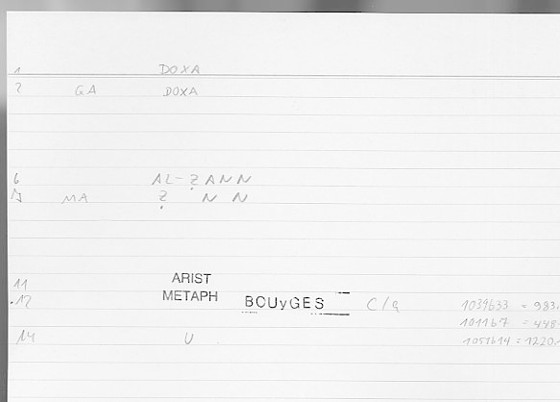 1 DOXA
2 GA DOXA
6 AL-ẒANN
7 MA Ẓ N N
11 ARIST
METAPH
12 BOUyGES C/a
1039b33 = 983
1011b7 = 448
1051b14 = 1220
14 U